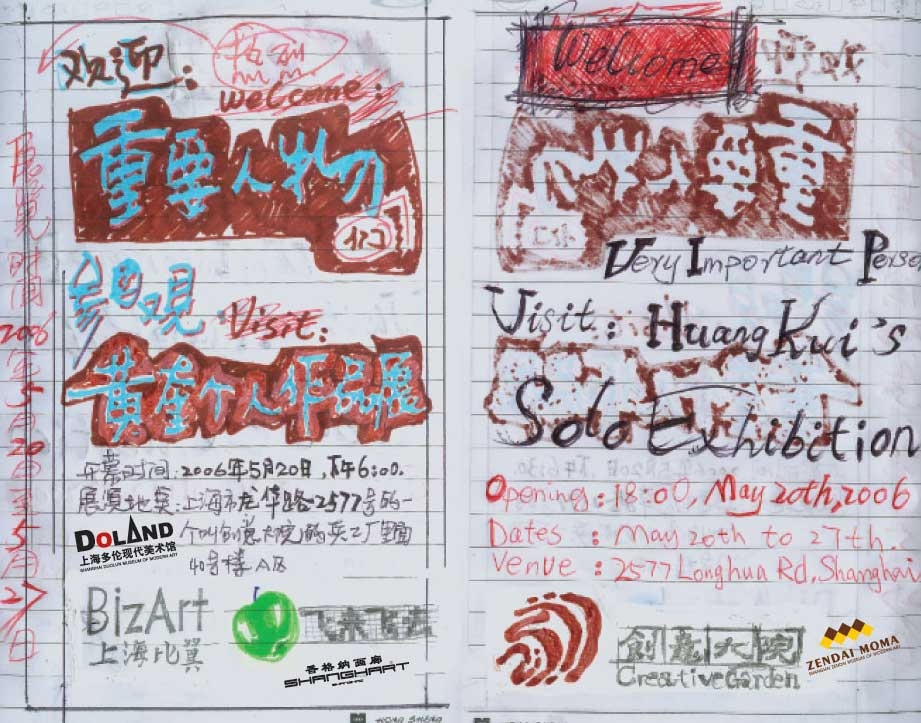 展览时间 2006年5月20日至5月27日
欢迎:
Welcome:
重要人物
参观 Visit:
黄奎个人作品展
开幕时间:2006年5月20日,下午6:00.
展览地点:上海市龙华路2577号的一
个叫创意大院的兵工厂里面
40号楼A区
DOLAND
上海多伦现代美术馆
SHANGHAI DUOLUN MUSEUM OF MODERN ART
BizArt
上海比翼
飞来飞去
香格纳画廊
SHANGHART
Welcome
Very Important Perso
Visit: Huang Kui's
Solo Exhibition
Opening: 18:00, May 20th, 2006
Dates : May 20th to 27th.
Venue : 2577 Longhua Rd, Shanghai
創意大院
Creative Garden
ZENDAI MOMA